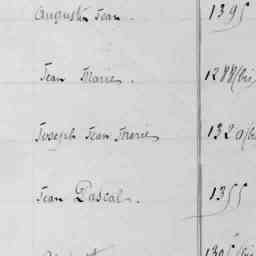 Augustin Jean. 1395
Jean Marie. 1288(bis
Joseph Jean Marie 1320(bis
Jean Pascal. 1355